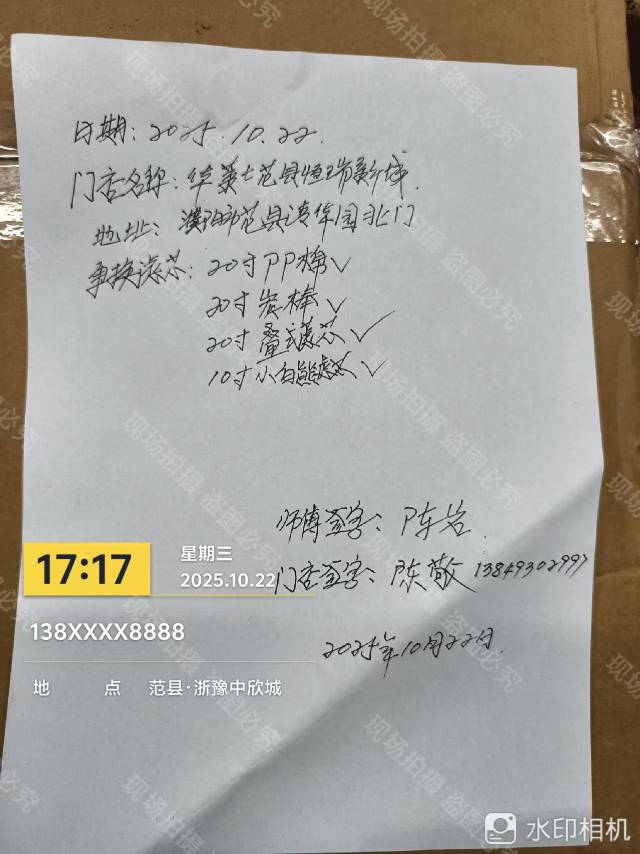 日期：2025.10.22.
门店名称：华莱士范县恒瑞新城.
地址：濮阳市范县清华园北门
更换滤芯：20寸PP棉✓
20寸炭棒✓
20寸叠式滤芯✓
10寸小白熊滤芯✓
师傅签字：陈岩.
门店签字：陈敬 13849302997
2025年10月22日.
17:17
星期三
2025.10.22
138XXXX8888
地 点 范县·浙豫中欣城
水印相机
现场拍摄 盗图必究